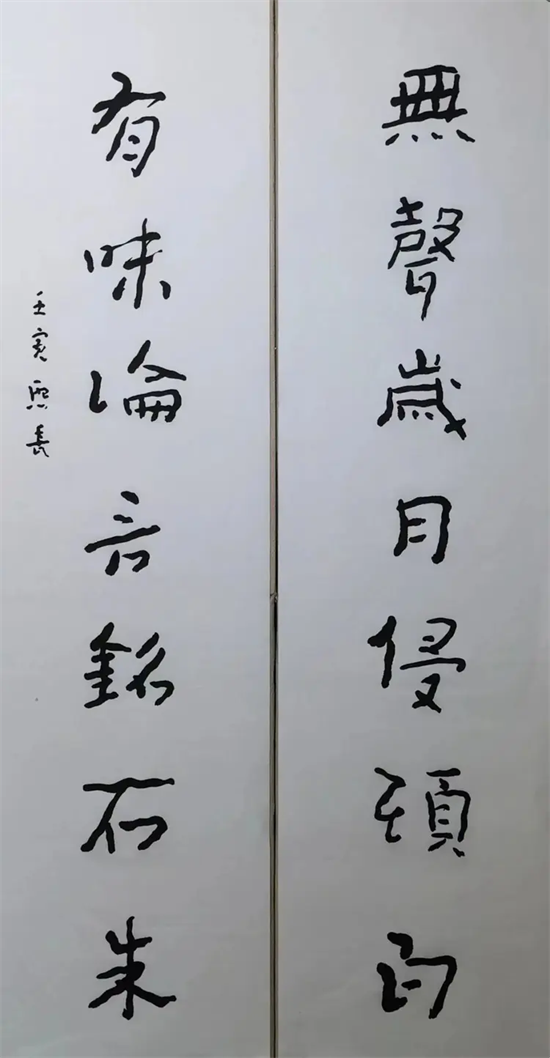 無聲歲月侵頭白
有味論言銘石朱
壬寅熙長